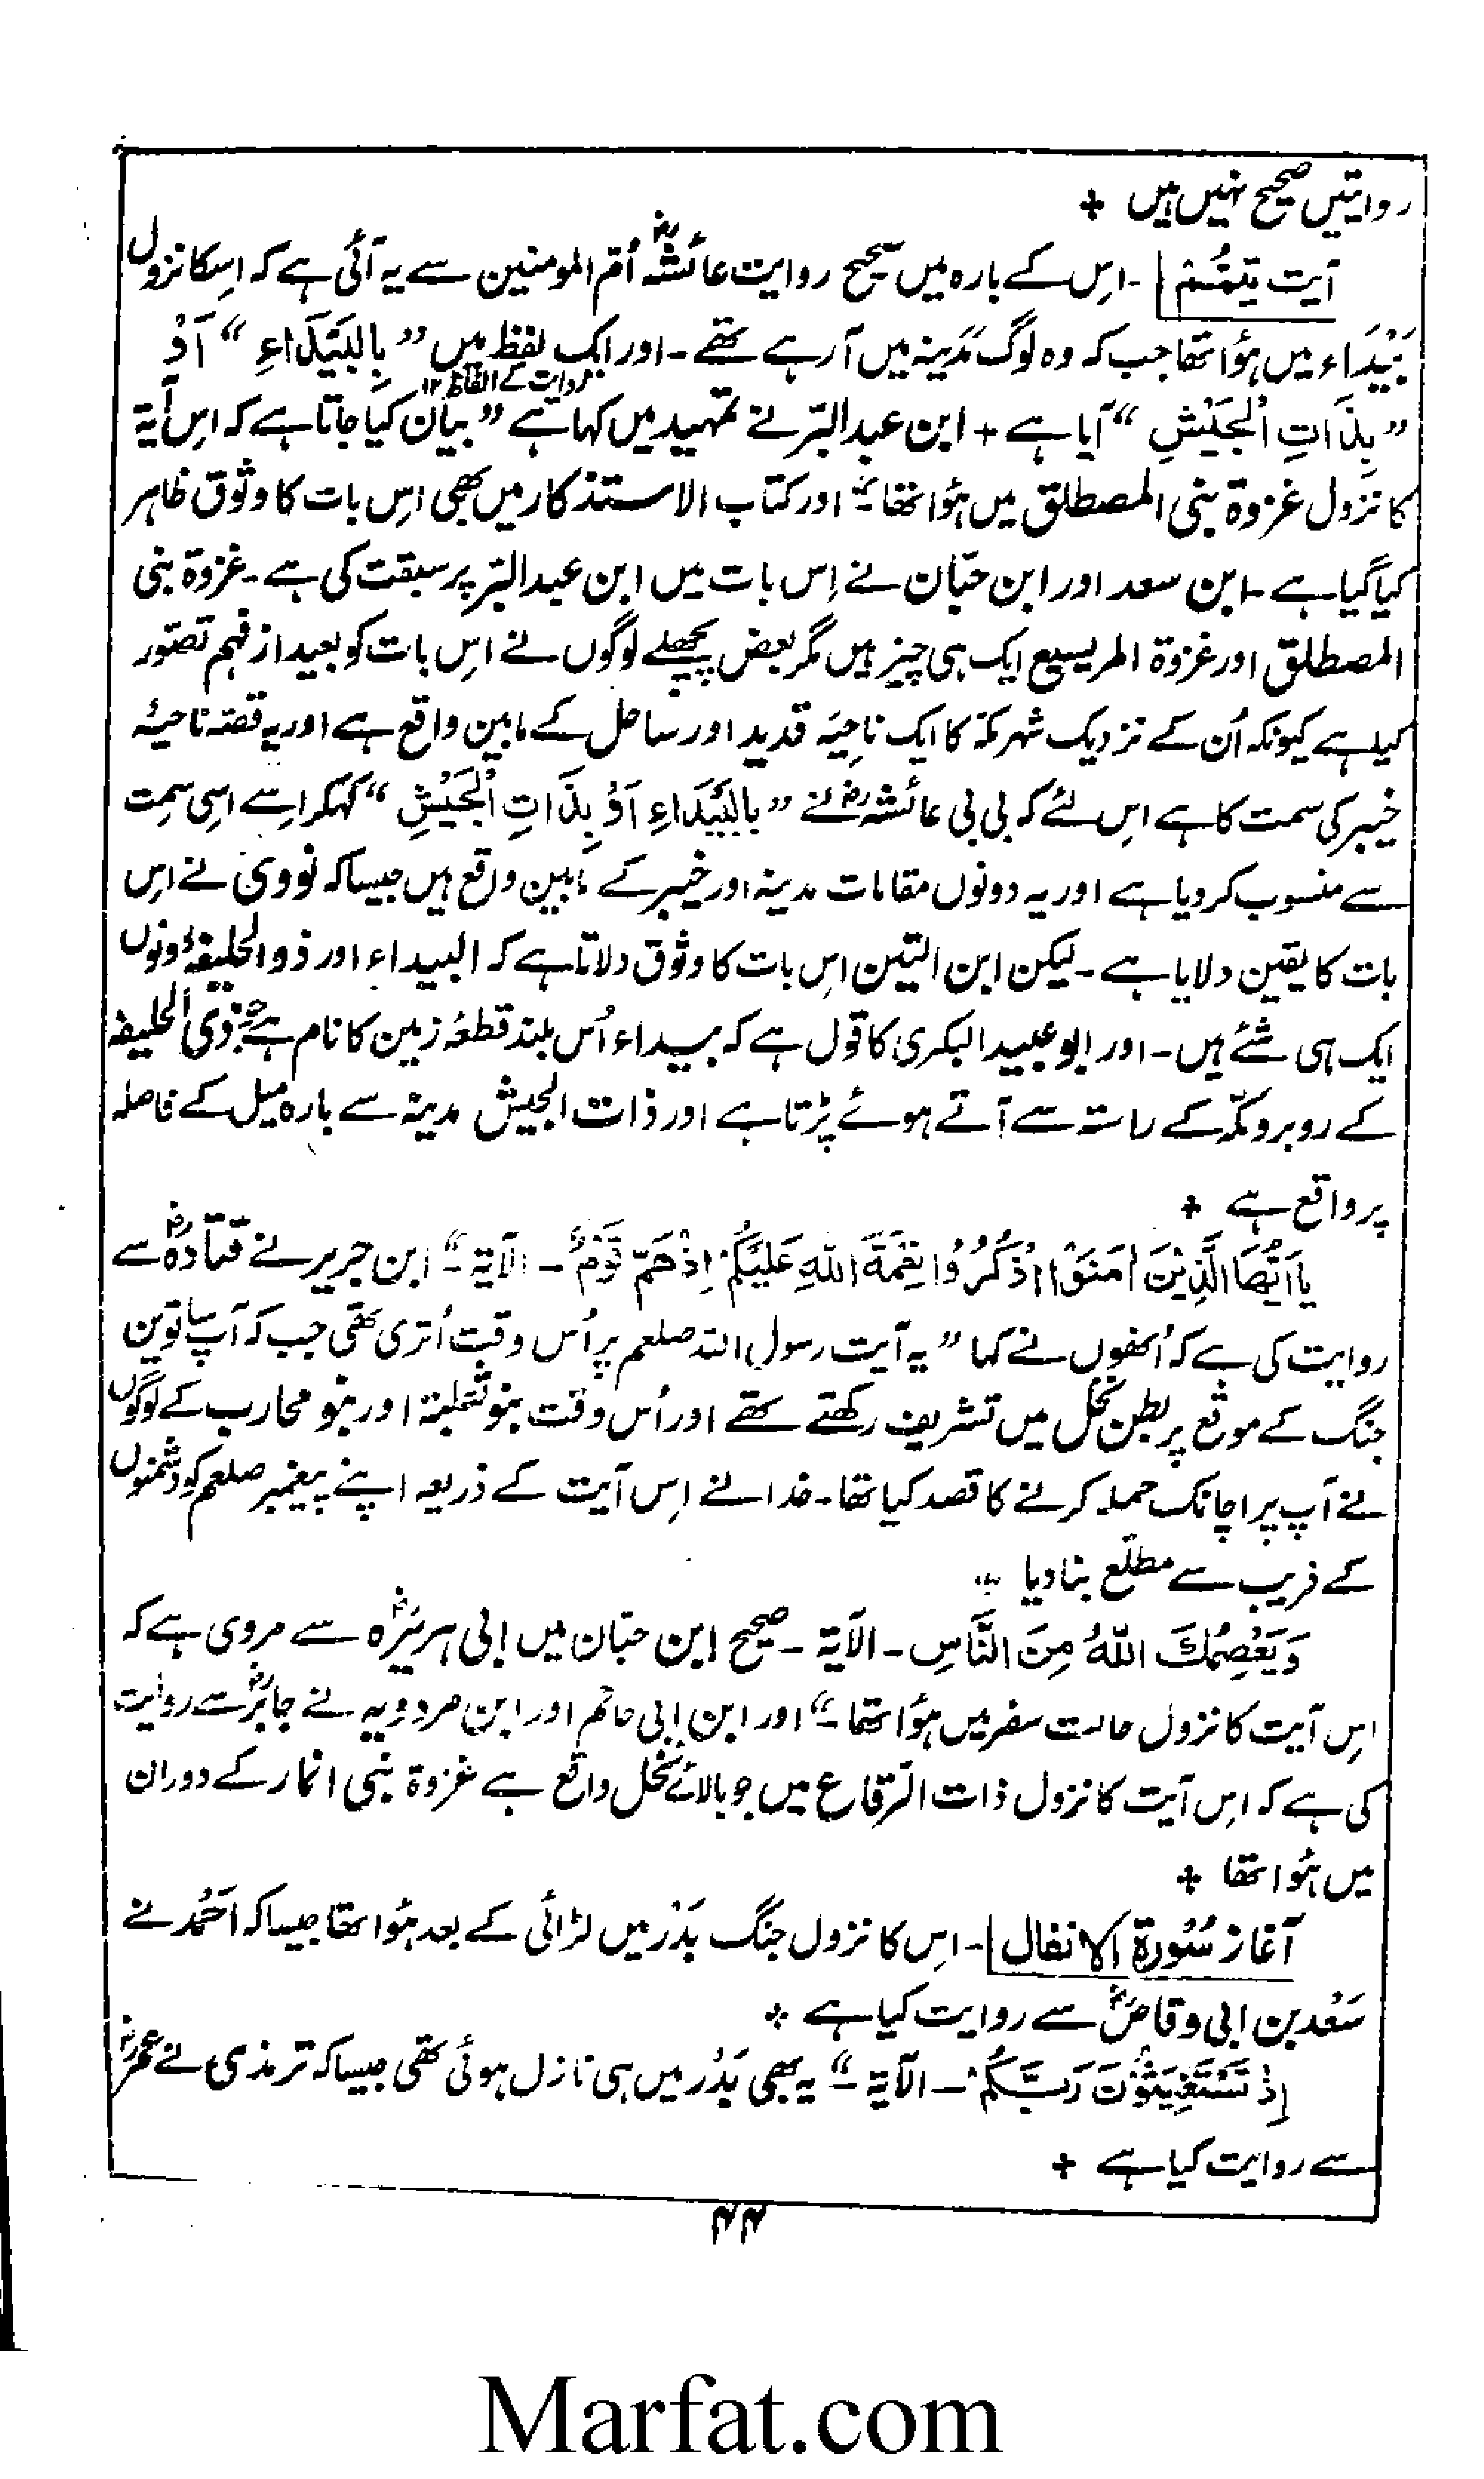 روایتیں صحیح نہیں ہیں +
آیت تیمّم - اِس کے بارہ میں صحیح روایت عائشہؓ اُمّ المومنین سے یہ آئی ہے کہ اِسکا نزول
بَیْدَاء میں ہؤا تھا جب کہ وہ لوگ مَدِینہ میں آ رہے تھے - اور ایک لفظ میں ” بِالبَیْدَاءِ “ اَوْ
روایت کے الفاظ ۱۲
” بِذَاتِ الْجَیْشِ “ آیا ہے + ابن عبد البرّ نے تمہید میں کہا ہے ” بیان کیا جاتا ہے کہ اِس آیۃ
کا نزول غزوۃ بنی المصطلق میں ہؤا تھا “ اور کتاب الاستذکار میں بھی اِس بات کا وثوق ظاہر
کیا گیا ہے - ابن سعد اور ابن حبّان نے اِس بات میں ابن عبدالبرّ پر سبقت کی ہے - غزوۃ بنی
المصطلق اور غزوۃ المریسیع ایک ہی چیز ہیں مگر بعض پچھلے لوگوں نے اِس بات کو بعید از فہم تصوّر
کیا ہے کیونکہ اُن کے نزدیک شہر مکّہ کا ایک ناحیَہ قدید اور ساحل کے مابین واقع ہے اور یہ قصّہ ناحیۂ
خیبر کی سمت کا ہے اِس لئے کہ بی بی عائشہؓ نے ” بِالبَیْدَاءِ اَوْ بِذَاتِ الْجَیْشِ “ کہکر اِسے اسی سمِت
سے منسوب کر دیا ہے اور یہ دونوں مقامات مدینہ اور خیبر کے مابین واقع ہیں جیسا کہ نووی نے اِس
بات کا یقین دلایا ہے - لیکن ابن التین اِس بات کا وثوق دلاتا ہے کہ البیداء اور ذو الحلیفہ دونوں
ایک ہی شئے ہیں - اور ابو عبید البکری کا قول ہے کہ بیداء اُس بلند قطعۂ زمین کا نام ہے جو ذی الحلیفہ
کے روبرو مکّہ کے راستہ سے آتے ہوئے پڑتا ہے اور ذات الجیش مدینہ سے بارہ میل کے فاصلہ
پر واقع ہے +
یَا اَیُّھَا الَّذِیْنَ اٰمَنُوْا اذْکُرُوْا نِعْمَۃَ اللّٰہِ عَلَیْکُمْ اِذْ ھَمَّ قَوْمٌ - الآیۃ - “ ابن جریر نے قتادہؓ سے
روایت کی ہے کہ اُنھوں نے کہا ” یہ آیت رسول اللہ صلعم پر اُس وقت اُتری تھی جب کہ آپ ساتویں
جنگ کے موقع پر بطن نخل میں تشریف رکھتے تھے اور اُس وقت بنو ثعلبۃ اور بنو محارب کے لوگوں
نے آپ پر اچانک حملہ کرنے کا قصد کیا تھا - خدا نے اِس آیت کے ذریعہ اپنے پیغمبر صلعم کو دشمنوں
کے فریب سے مطلّع بنا دیا “
وَیَعْصِمُكَ اللّٰہُ مِنَ النَّاسِ - الآیۃ - صحیح ابن حبّان میں ابی ہریرہؓ سے مروی ہے کہ
اِس آیت کا نزول حالت سفر میں ہؤا تھا “ اور ابن ابی حاتم اور ابن مردویہ نے جابرؓ سے روایت
کی ہے کہ اِس آیت کا نزول ذات الرّقاع میں جو بالائے نخل واقع ہے غزوۃ بنی انمار کے دوران
میں ہؤا تھا +
آغاز سُوْرۃ الانفال - اِس کا نزول جنگ بَدْر میں لڑائی کے بعد ہؤا تھا جیسا کہ احمد نے
سَعْد بن ابی وقاصؓ سے روایت کیا ہے +
اِذْ تَسْتَغِیْثُوْنَ رَبَّکُمْ - الآیۃ - “ یہ بھی بَدْر میں ہی نازل ہوئی تھی جیسا کہ ترمذی نے عمرؓ
سے روایت کیا ہے +
۴۴
Marfat.com